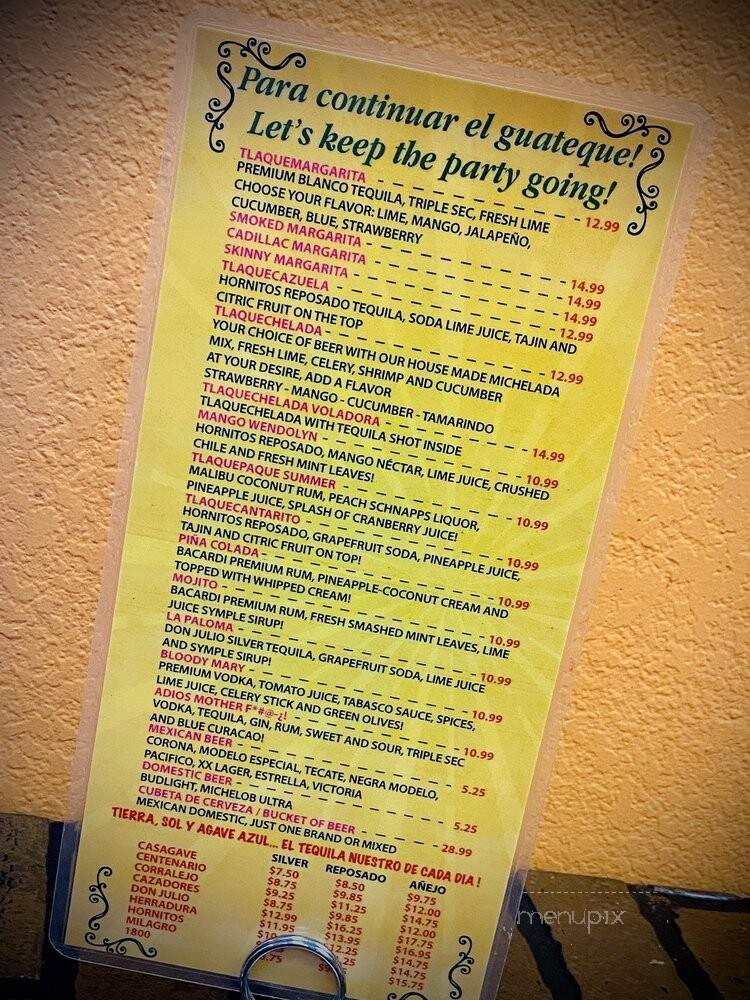 Para continuar el guateque!
Let's keep the party going!
TLAQUEMARGARITA 12.99
PREMIUM BLANCO TEQUILA, TRIPLE SEC, FRESH LIME
CHOOSE YOUR FLAVOR: LIME, MANGO, JALAPEÑO,
CUCUMBER, BLUE, STRAWBERRY
SMOKED MARGARITA 14.99
CADILLAC MARGARITA 14.99
SKINNY MARGARITA 14.99
TLAQUECAZUELA 12.99
HORNITOS REPOSADO TEQUILA, SODA LIME JUICE, TAJIN AND
CITRIC FRUIT ON THE TOP
TLAQUECHELADA 12.99
YOUR CHOICE OF BEER WITH OUR HOUSE MADE MICHELADA
MIX, FRESH LIME, CELERY, SHRIMP AND CUCUMBER
AT YOUR DESIRE, ADD A FLAVOR
STRAWBERRY - MANGO - CUCUMBER - TAMARINDO
TLAQUECHELADA VOLADORA 14.99
TLAQUECHELADA WITH TEQUILA SHOT INSIDE
MANGO WENDOLYN 10.99
HORNITOS REPOSADO, MANGO NÉCTAR, LIME JUICE, CRUSHED
CHILE AND FRESH MINT LEAVES!
TLAQUEPAQUE SUMMER 10.99
MALIBU COCONUT RUM, PEACH SCHNAPPS LIQUOR,
PINEAPPLE JUICE, SPLASH OF CRANBERRY JUICE!
TLAQUECANTARITO 10.99
HORNITOS REPOSADO, GRAPEFRUIT SODA, PINEAPPLE JUICE,
TAJIN AND CITRIC FRUIT ON TOP!
PIÑA COLADA 10.99
BACARDI PREMIUM RUM, PINEAPPLE-COCONUT CREAM AND
TOPPED WITH WHIPPED CREAM!
MOJITO 10.99
BACARDI PREMIUM RUM, FRESH SMASHED MINT LEAVES, LIME
JUICE SYMPLE SIRUP!
LA PALOMA 10.99
DON JULIO SILVER TEQUILA, GRAPEFRUIT SODA, LIME JUICE
AND SYMPLE SIRUP!
BLOODY MARY 10.99
PREMIUM VODKA, TOMATO JUICE, TABASCO SAUCE, SPICES,
LIME JUICE, CELERY STICK AND GREEN OLIVES!
ADIOS MOTHER F*#@-¿! 10.99
VODKA, TEQUILA, GIN, RUM, SWEET AND SOUR, TRIPLE SEC
AND BLUE CURACAO!
MEXICAN BEER 5.25
CORONA, MODELO ESPECIAL, TECATE, NEGRA MODELO,
PACIFICO, XX LAGER, ESTRELLA, VICTORIA
DOMESTIC BEER 5.25
BUDLIGHT, MICHELOB ULTRA
CUBETA DE CERVEZA / BUCKET OF BEER 28.99
MEXICAN DOMESTIC, JUST ONE BRAND OR MIXED
TIERRA, SOL Y AGAVE AZUL... EL TEQUILA NUESTRO DE CADA DIA!
SILVER REPOSADO AÑEJO
CASAGAVE $7.50 $8.50 $9.75
CENTENARIO $8.75 $9.85 $12.00
CORRALEJO $9.25 $11.25 $14.75
CAZADORES $8.75 $9.85 $12.00
DON JULIO $12.99 $16.25 $17.75
HERRADURA $11.95 $13.95 $16.95
HORNITOS $12.25 $14.75
MILAGRO $14.75
1800 $15.75
menupix